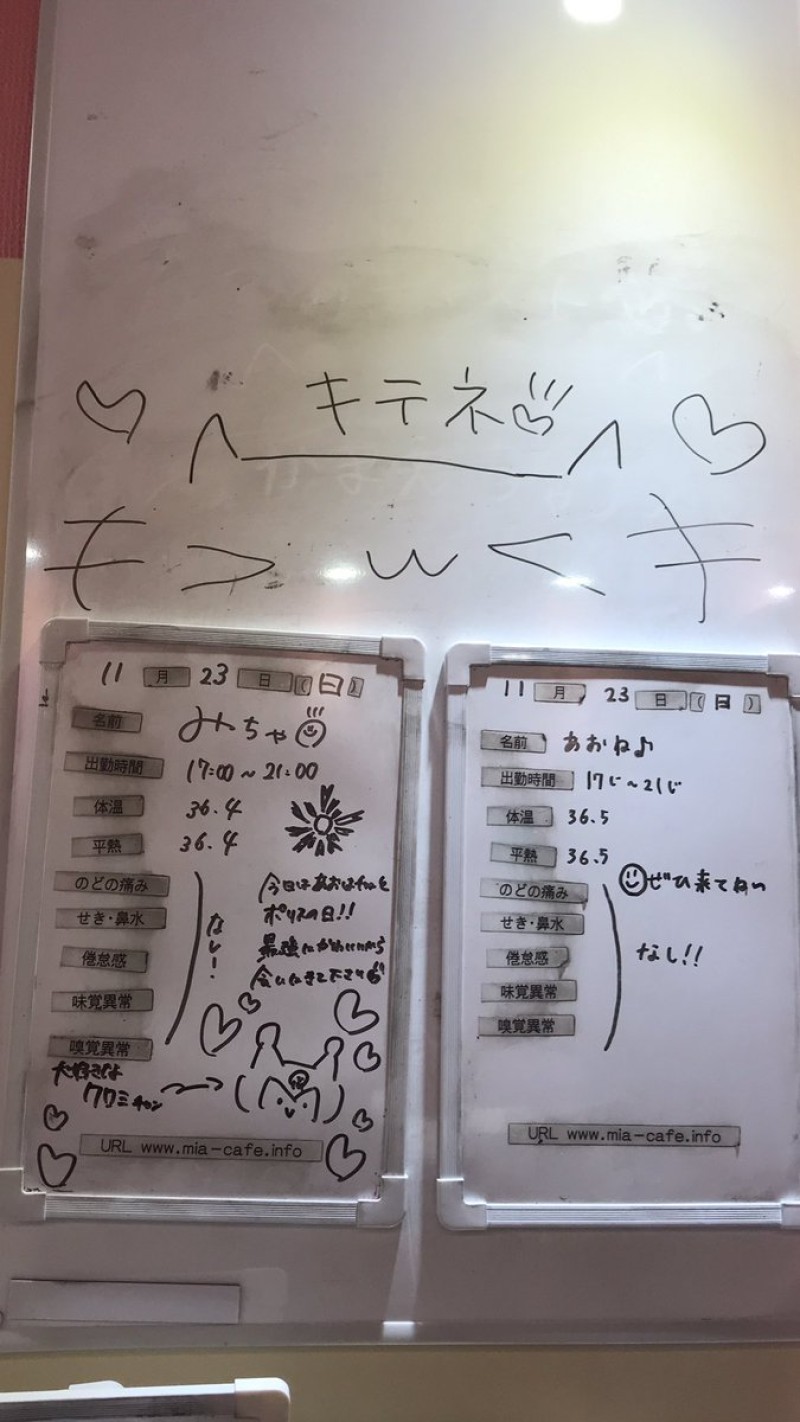 キテネ
キ > w < キ
11 月 23 日 ( 日 )
名前 みちゃ
出勤時間 17:00 ~ 21:00
体温 36.4
平熱 36.4
のどの痛み
せき・鼻水
倦怠感
味覚異常
嗅覚異常
なし!
ポリスの日!!
最強にかわいいから
会いにきて下さい
大好きな
クロミチャン
URL www.mia-cafe.info
11 月 23 日 ( 日 )
名前 あおね♪
出勤時間 17じ~21じ
体温 36.5
平熱 36.5
のどの痛み
せき・鼻水
倦怠感
味覚異常
嗅覚異常
ぜひ来てねい
なし!!
URL www.mia-cafe.info